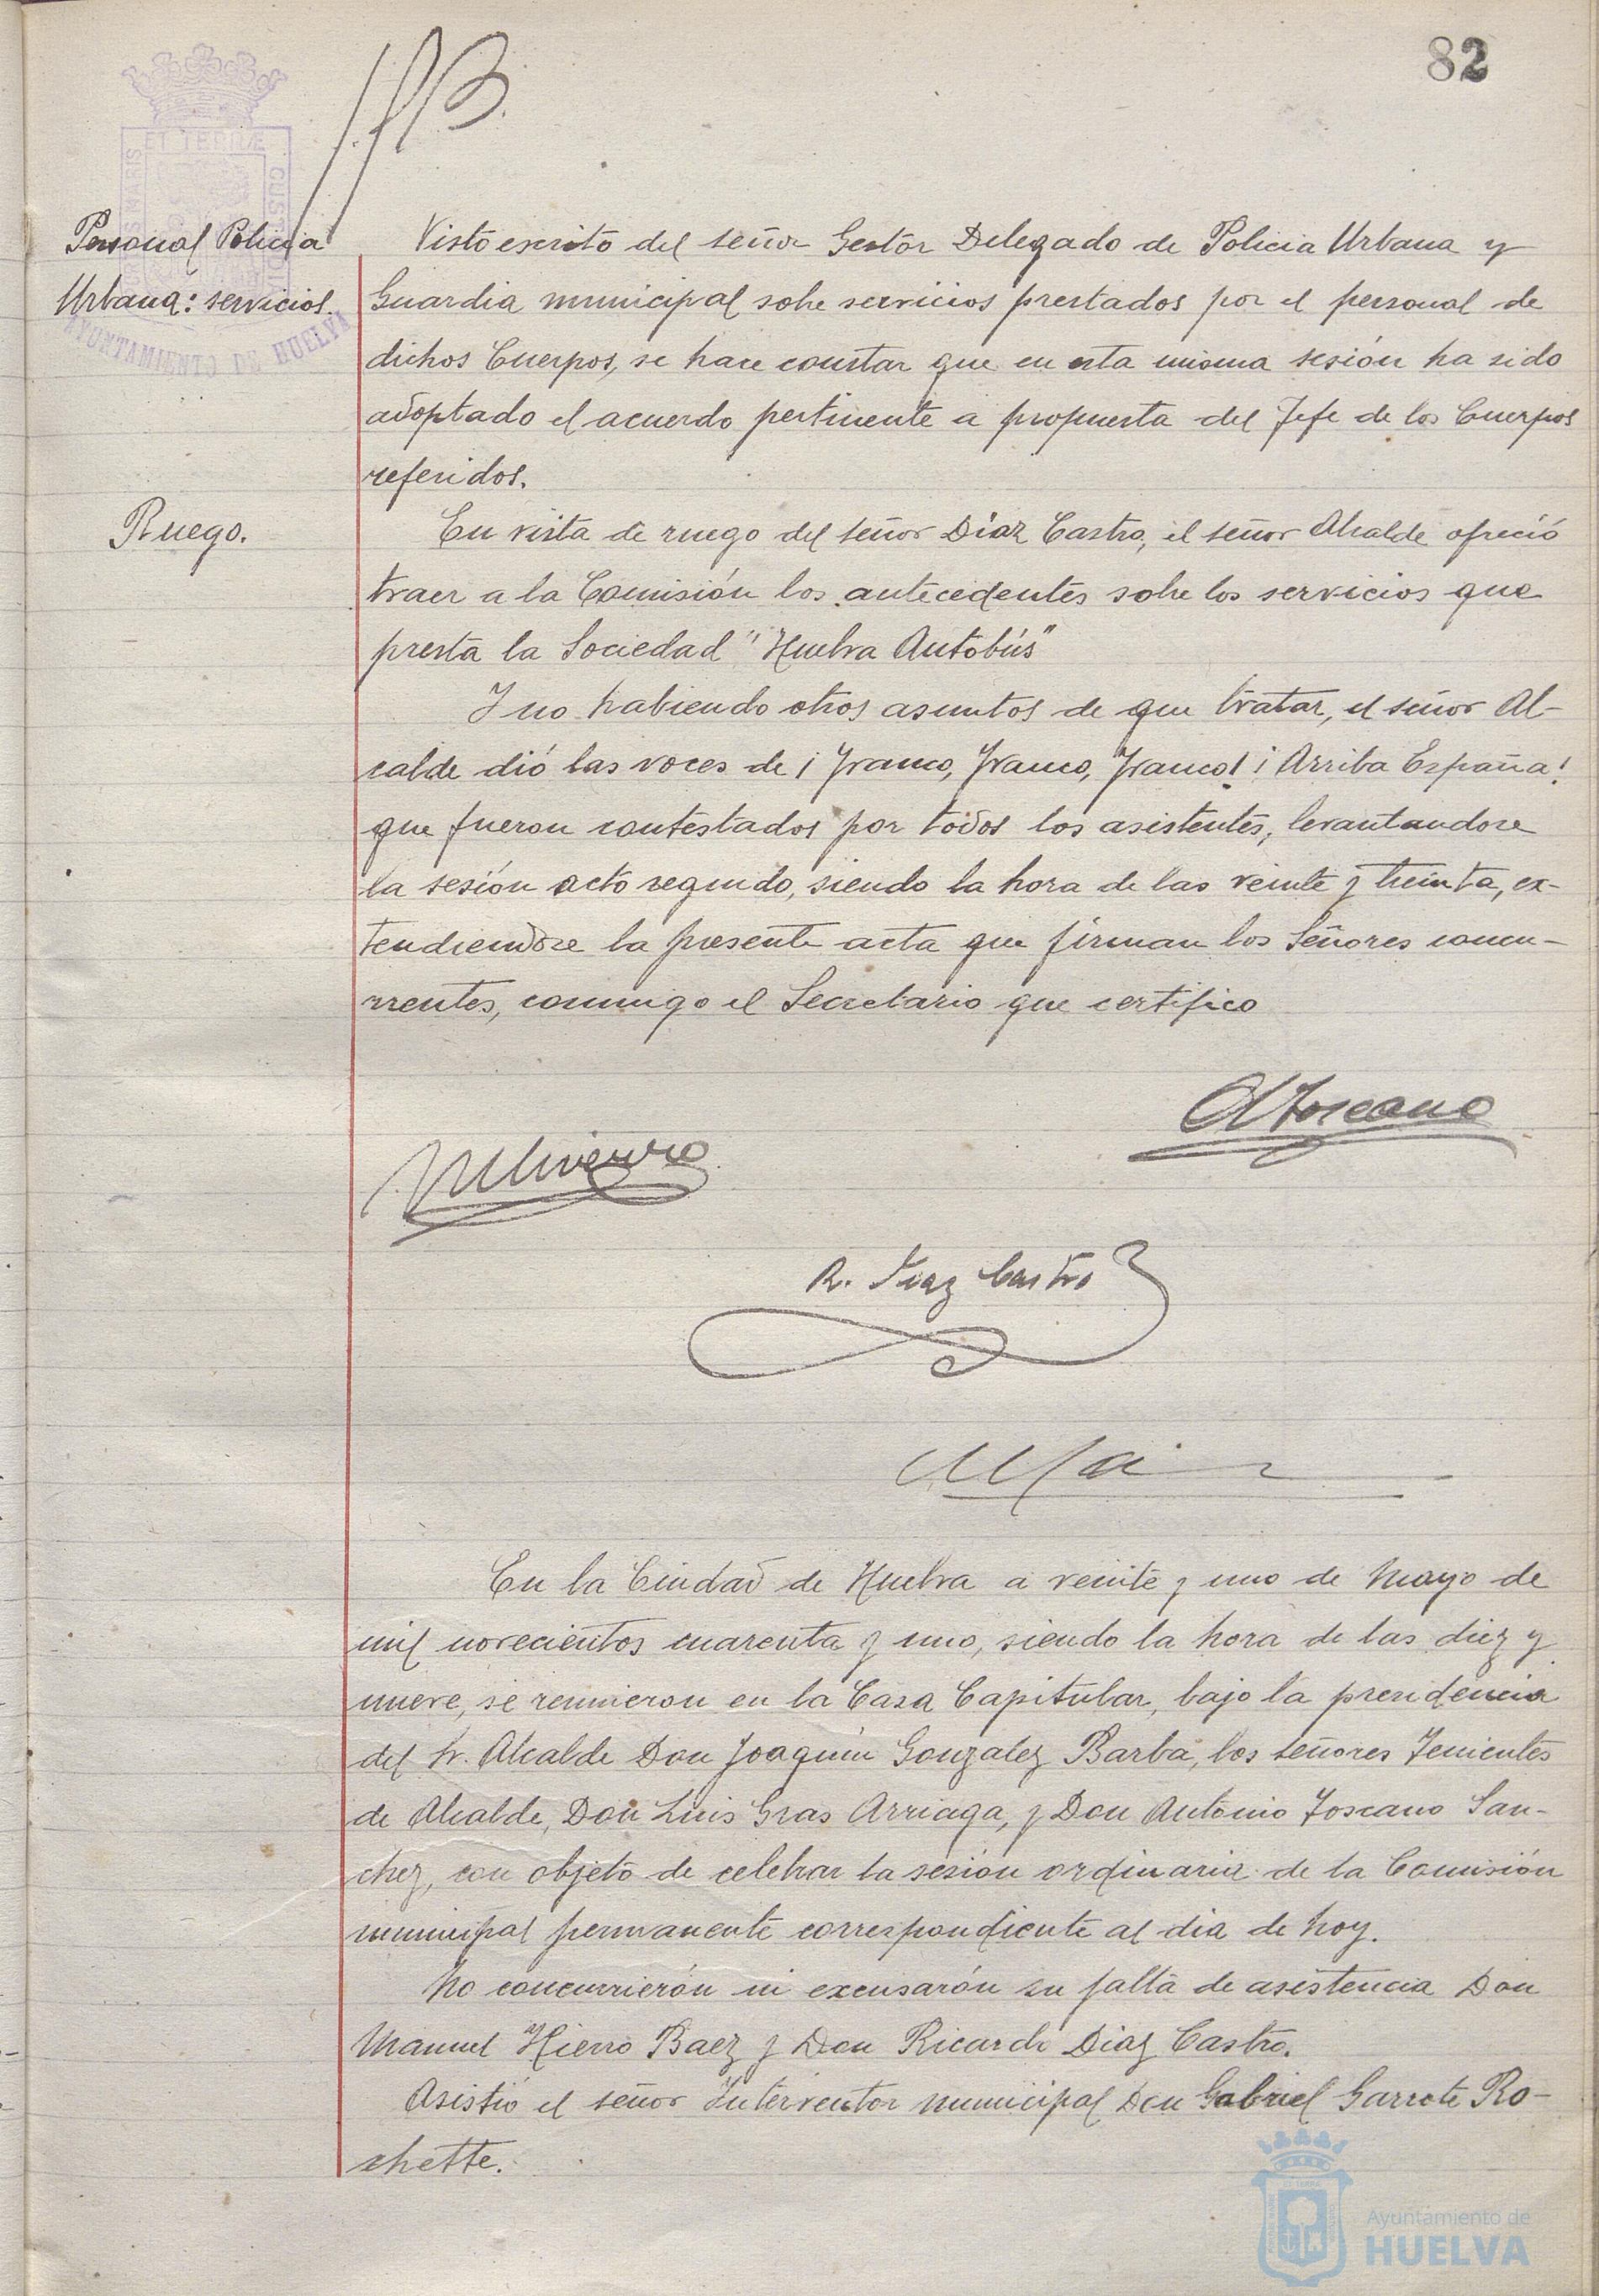 82
Personal Policia
Urbana: servicios.
Visto escrito del señor Gestor Delegado de Policia Urbana y
Guardia municipal sobre servicios prestados por el personal de
dichos Cuerpos, se hace constar que en esta misma sesión ha sido
adoptado el acuerdo pertinente a propuesta del Jefe de los Cuerpos
referidos.
Ruego.
En vista de ruego del señor Díaz Castro, el señor Alcalde ofreció
traer a la Comisión los antecedentes sobre los servicios que
presta la Sociedad "Huelva Autobús"
Y no habiendo otros asuntos de que tratar, el señor Al-
calde dió las voces de ¡Franco, Franco, Franco! ¡Arriba España!
que fueron contestados por todos los asistentes, levantandose
la sesión acto segundo, siendo la hora de las veinte y treinta, ex-
tendiendose la presente acta que firman los Señores concu-
rrentes, conmigo el Secretario que certifico
A Toscano
R. Diaz Castro
En la Ciudad de Huelva a veinte y uno de Mayo de
mil novecientos cuarenta y uno, siendo la hora de las diez y
nueve, se reunieron en la Casa Capitular, bajo la presidencia
del Sr. Alcalde Don Joaquín Gonzalez Barba, los señores Tenientes
de Alcalde, Don Luis Gras Arriaga, y Don Antonio Toscano San-
chez, con objeto de celebrar la sesión ordinaria de la Comisión
municipal permanente correspondiente al dia de hoy.
No concurrierón ni excusarón su falta de asistencia Don
Manuel Hierro Baez y Don Ricardo Diaz Castro.
Asistió el señor Interventor municipal Don Gabriel Garrote Ro-
chette.
ET TERRÆ
CUSTODIA
MARIS
AYUNTAMIENTO DE HUELVA
Ayuntamiento de
HUELVA